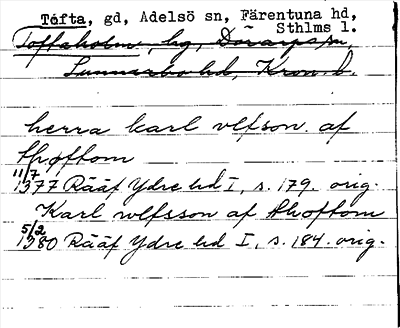 Tofta, gd, Adelsö sn, Färentuna hd,
Sthlms l.
Toftaholm, hg, Dörarps sn,
Sunnerbo hd, Kron. l.
herra karl vlfson. af
thoftom
11/7
1377 Rääf Ydre hd I, s. 179. orig.
Karl wlfsson af thoftom
5/2
1380 Rääf Ydre hd I, s. 184. orig.